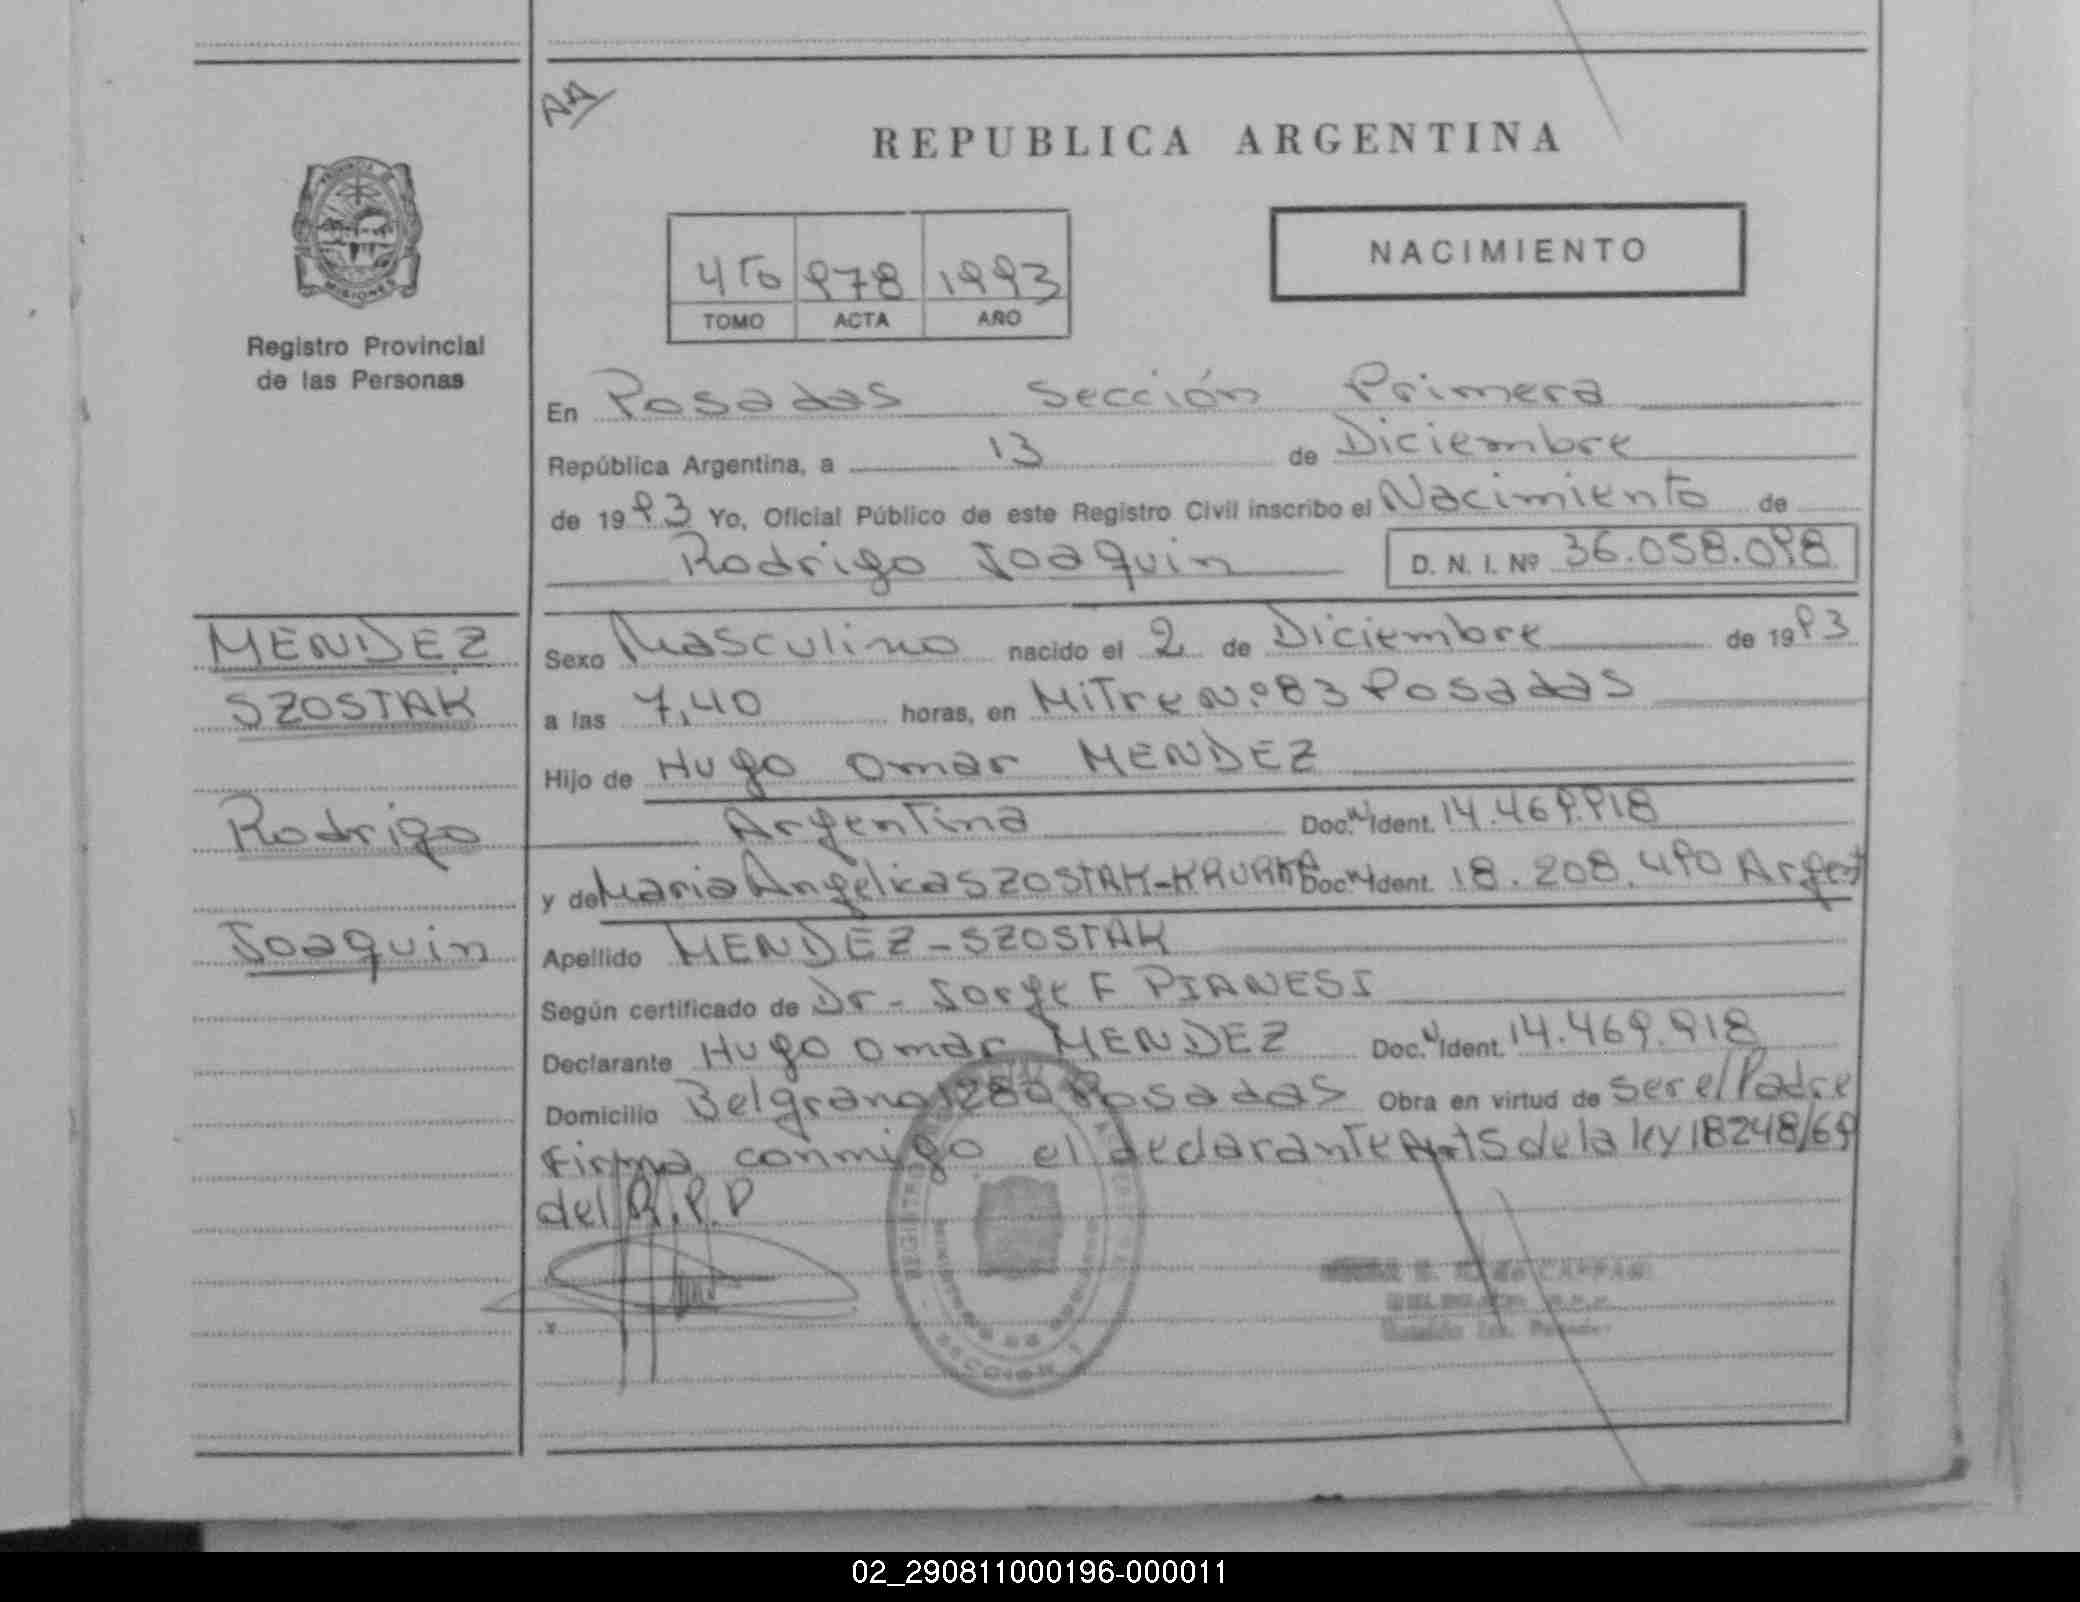 AA
REPUBLICA ARGENTINA
PROVINCIA DE
MISIONES
Registro Provincial
de las Personas
NACIMIENTO
4to 978 1993
TOMO ACTA AÑO
En Posadas Sección Primera
República Argentina, a 13 de Diciembre
de 1993 Yo, Oficial Público de este Registro Civil inscribo el Nacimiento de
Rodrigo Joaquin D. N. I. Nº 36.058.098
MENDEZ
SZOSTAK
Rodrigo
Joaquin
Sexo Masculino nacido el 2 de Diciembre de 1993
a las 7,40 horas, en Mitre Nº 83 Posadas
Hijo de Hugo Omar MENDEZ
Argentina Doc. N Ident. 14.469.918
y de Maria Angelica SZOSTAK- Doc. N Ident. 18.208.490 Argent
Apellido MENDEZ-SZOSTAK
Según certificado de Dr- Jorge F PIANESI
Declarante Hugo Omar MENDEZ Doc. N Ident. 14.469.918
Domicilio Belgrano 1280 Posadas Obra en virtud de ser el Padre
Firma conmigo el declarante Art 5 de la ley 18248/69
del R.P.P
x
SECCION 1
02_290811000196-000011